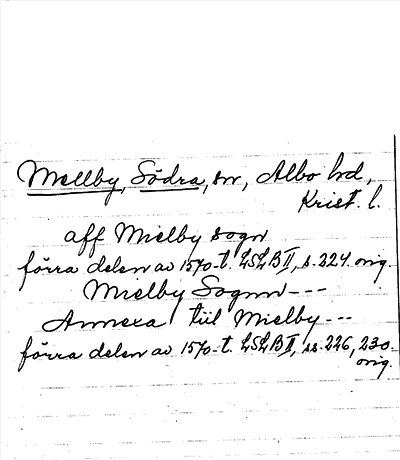 Mellby, Södra, sn, Albo hd,
Krist. l.
aff Mielby sogn
förra delen av 1570-t. LSLB II, s. 224 orig.
Mielby Sognn ---
Annexa tiil Mielby ---
förra delen av 1570-t. LSLB II, ss. 226, 230
orig.